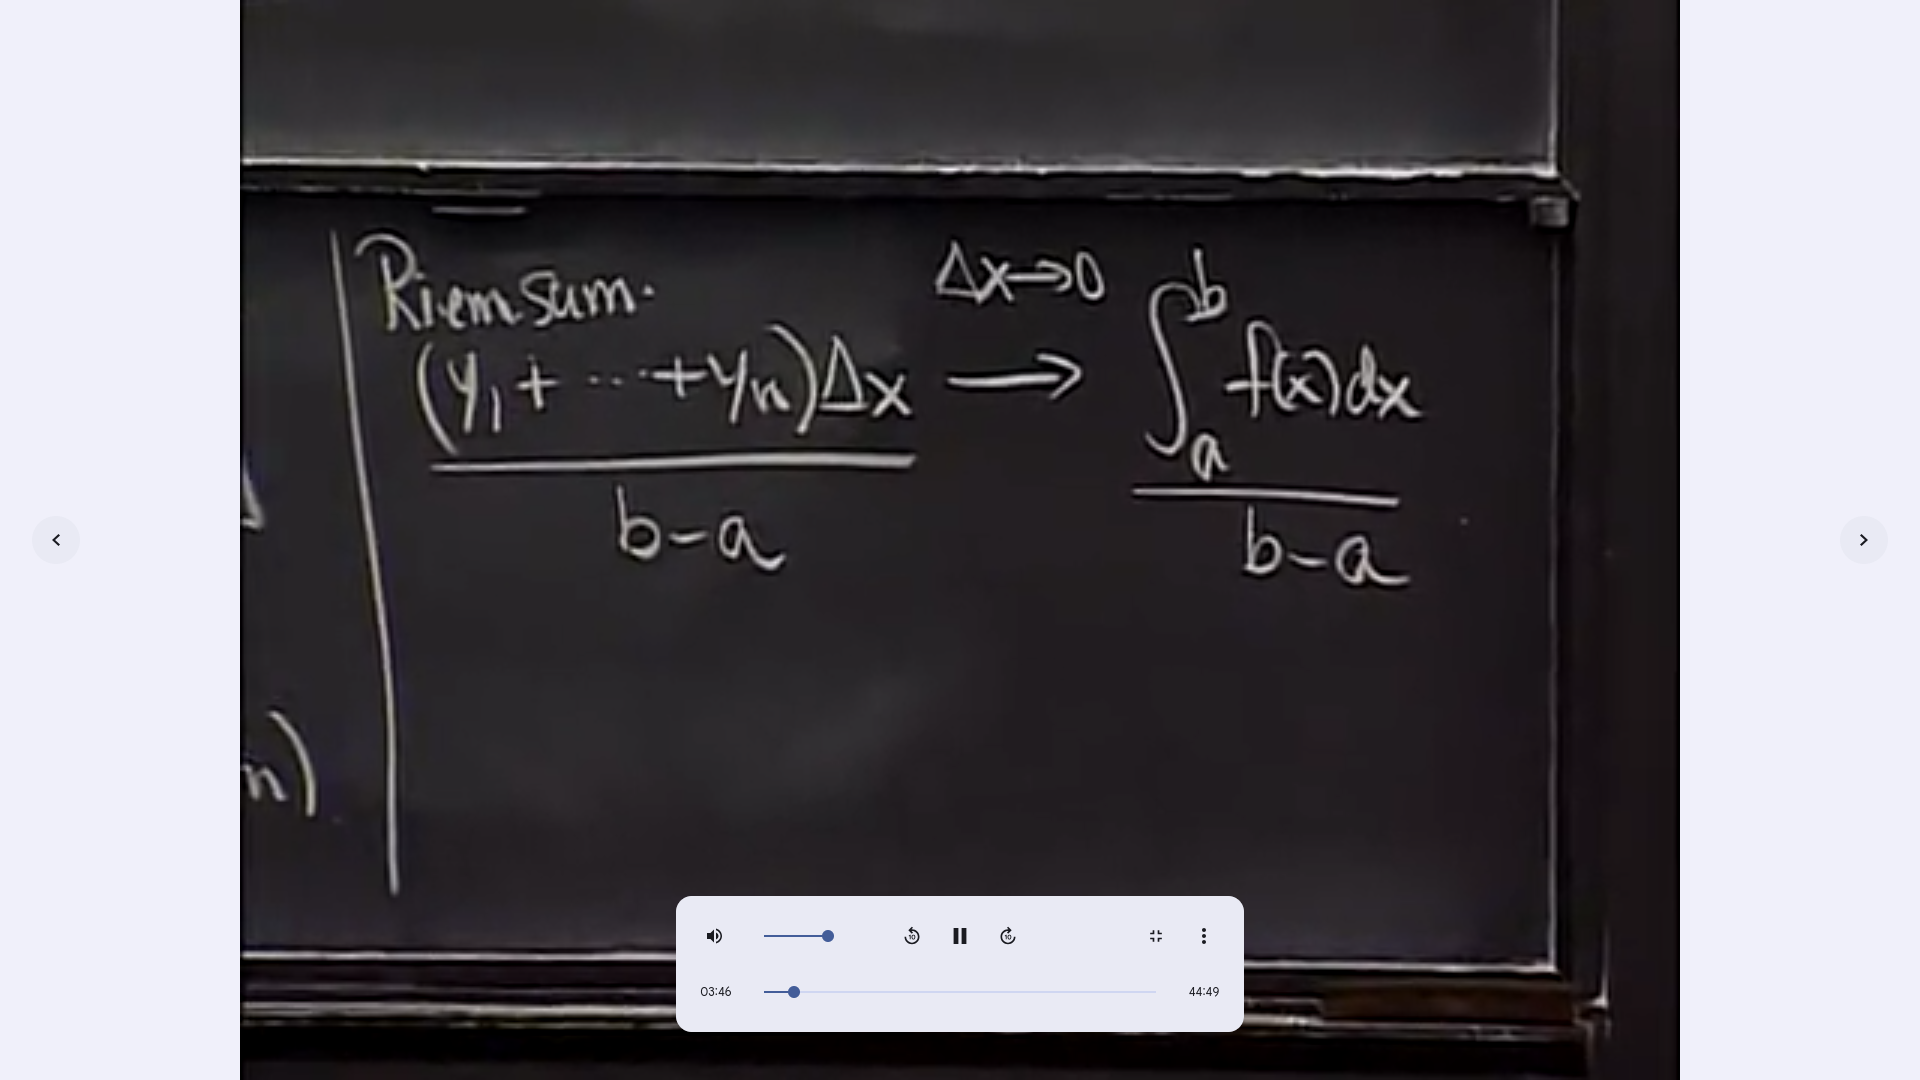 Riem. sum.
Δx→0
(y₁ + ··· + yₙ)Δx / b-a → ∫ₐᵇ f(x)dx / b-a
n)
03:46
44:49